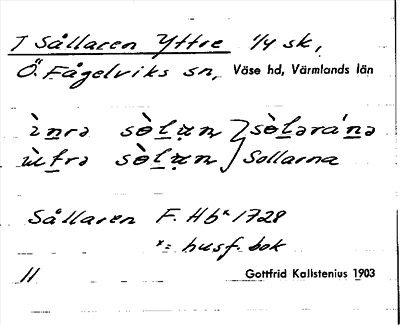 T Sållaren Yttre 1/4 sk,
Ö. Fågelviks sn, Väse hd, Värmlands län
ìnrə sòlạn } sòləráṇə
ùtrə sòlạn } Sollarna
Sållaren F. Hbˣ 1728
ˣ= husf. bok
11 Gottfrid Kallstenius 1903